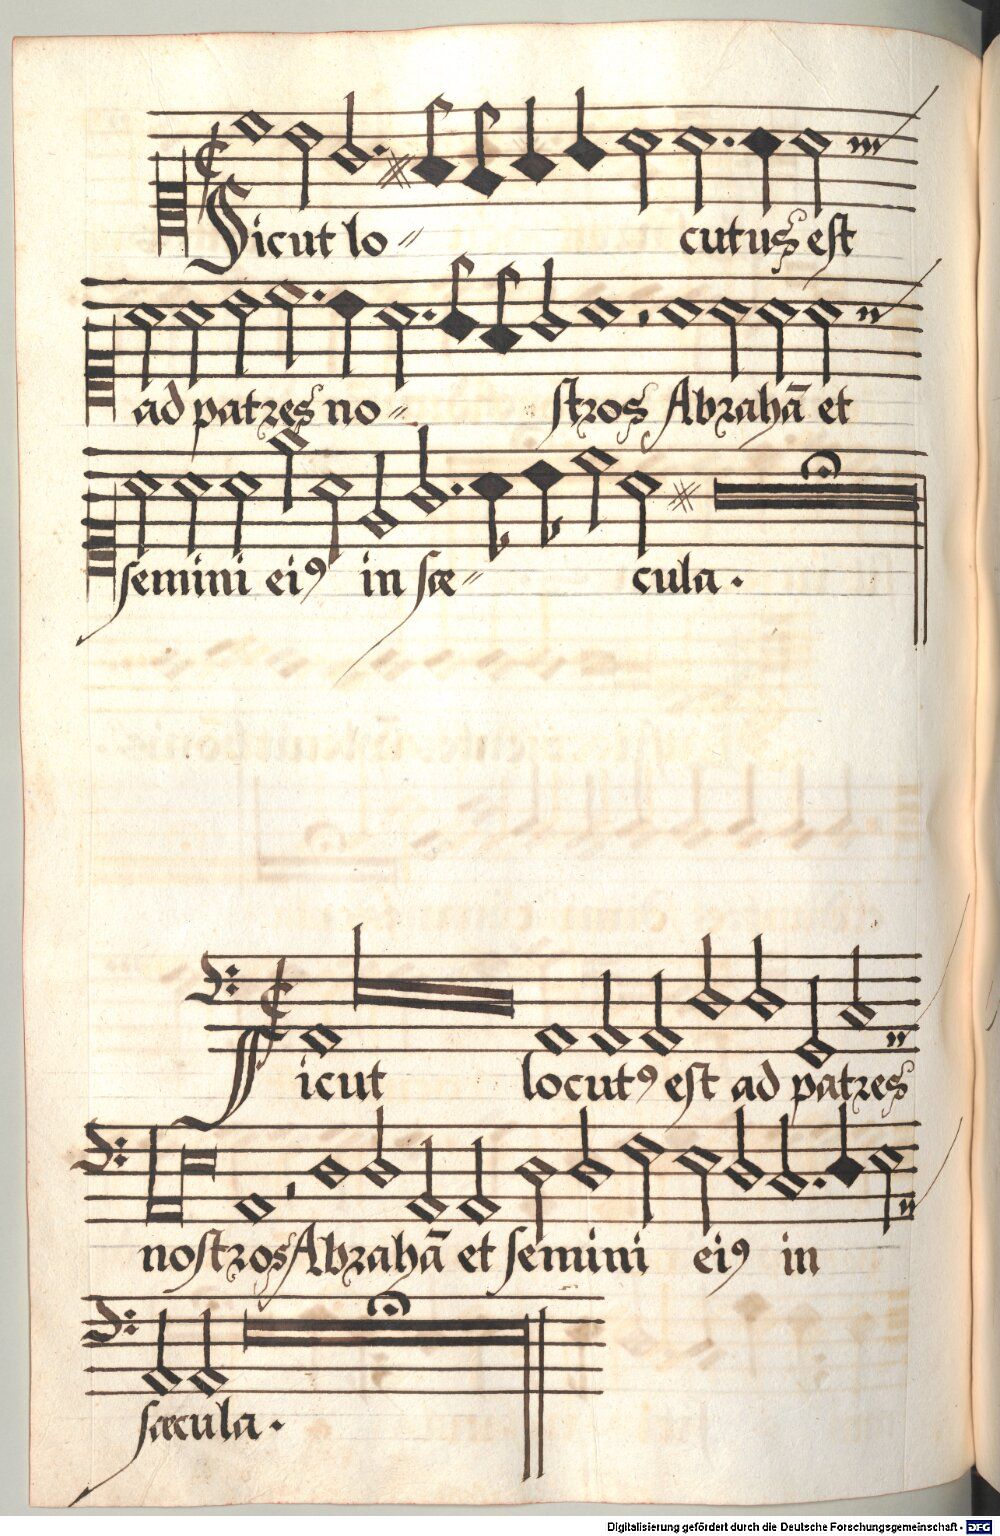 Sicut lo〃 cutus est
ad patres no〃 stros Abrahã et
semini eiꝰ in sæ〃 cula.
Sicut locutꝰ est ad patres
nostros Abrahã et semini eiꝰ in
sæcula.
Digitalisierung gefördert durch die Deutsche Forschungsgemeinschaft - DFG